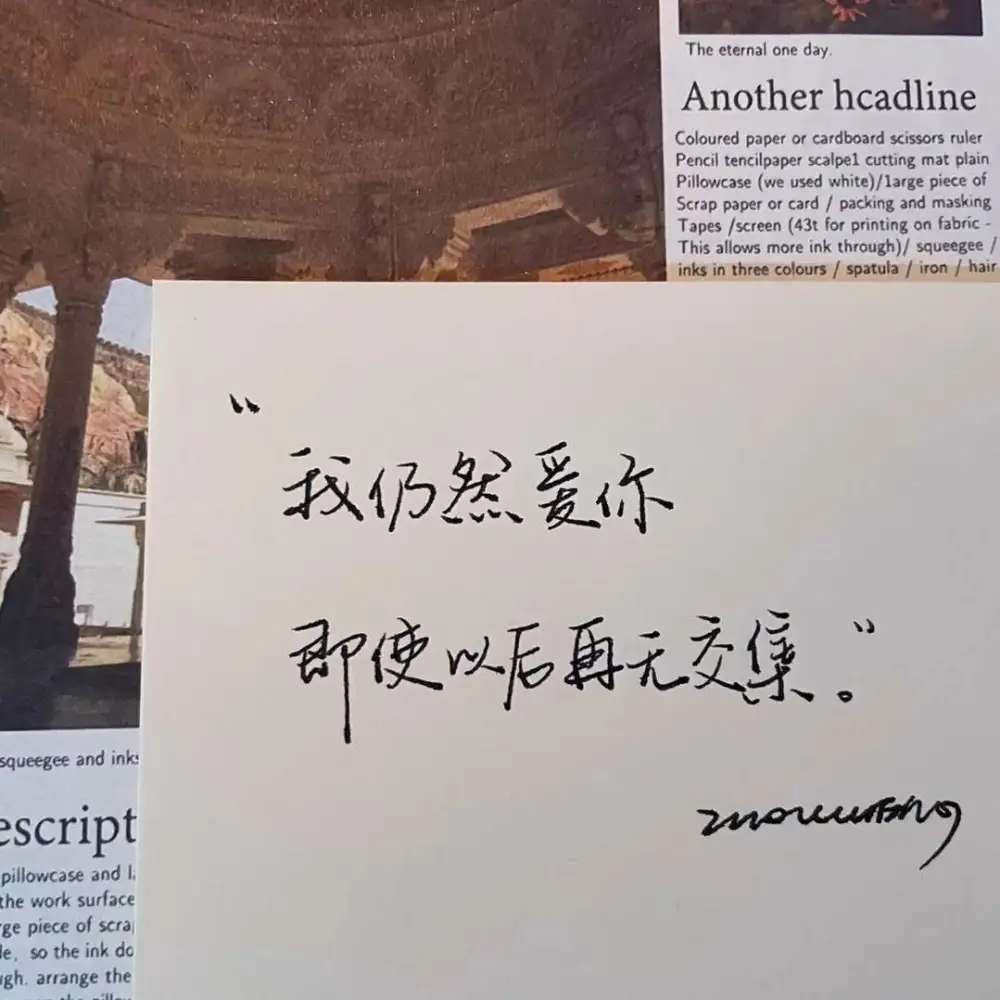 The eternal one day.
Another hcadline
Coloured paper or cardboard scissors ruler
Pencil tencilpaper scalpe1 cutting mat plain
Pillowcase (we used white)/1arge piece of
Scrap paper or card / packing and masking
Tapes /screen (43t for printing on fabric -
This allows more ink through)/ squeegee /
inks in three colours / spatula / iron / hair
“我仍然爱你
即使以后再无交集。”
squeegee and inks
escript
pillowcase and l
the work surface
rge piece of scra
le, so the ink do
ugh. arrange the